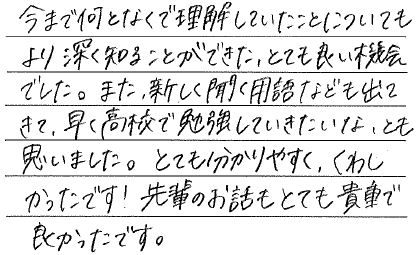 今まで何となくで理解していたことについても
より深く知ることができた、とても良い機会
でした。また、新しく聞く用語なども出て
きて、早く高校で勉強していきたいな、とも
思いました。とても分かりやすく、くわし
かったです！先輩のお話もとても貴重で
良かったです。